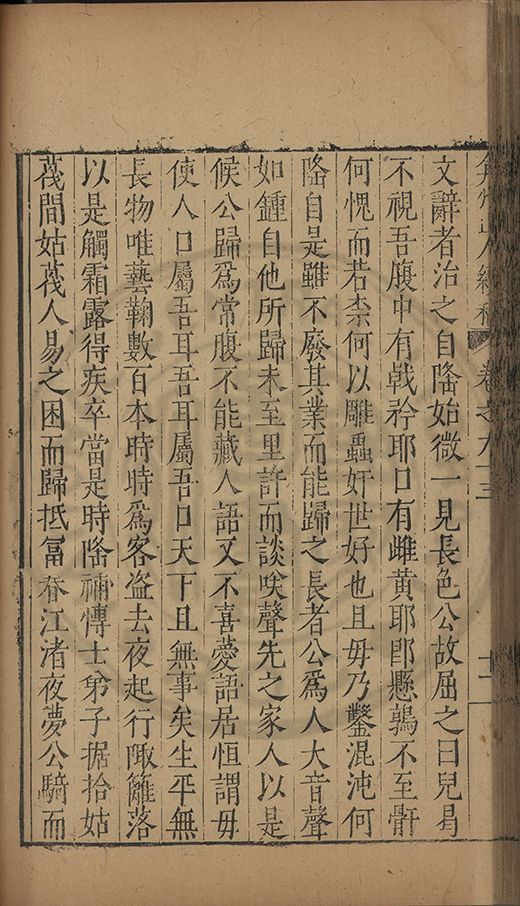 弇州山人續稿 卷之九十三 十一
文辭者治之自隆始微一見長色公故屈之曰兒曷
不視吾腹中有戟矜耶口有雌黃耶即懸鶉不至骭
何愧而若柰何以雕蟲奸世好也且毋乃鑿混沌何
隆自是雖不廢其業而能歸之長者公為人大音聲
如鍾自他所歸未至里許而談唉聲先之家人以是
候公歸為常腹不能藏人語又不喜憂語居恒謂毋
使人口屬吾耳吾耳屬吾口天下且無事矣生平無
長物唯藝鞠數百本時時為客盜去夜起行陬籬落
以是觸霜露得疾卒當是時隆補慱士弟子据拾姑
莪間姑莪人易之困而歸抵冨春江渚夜夢公騎而